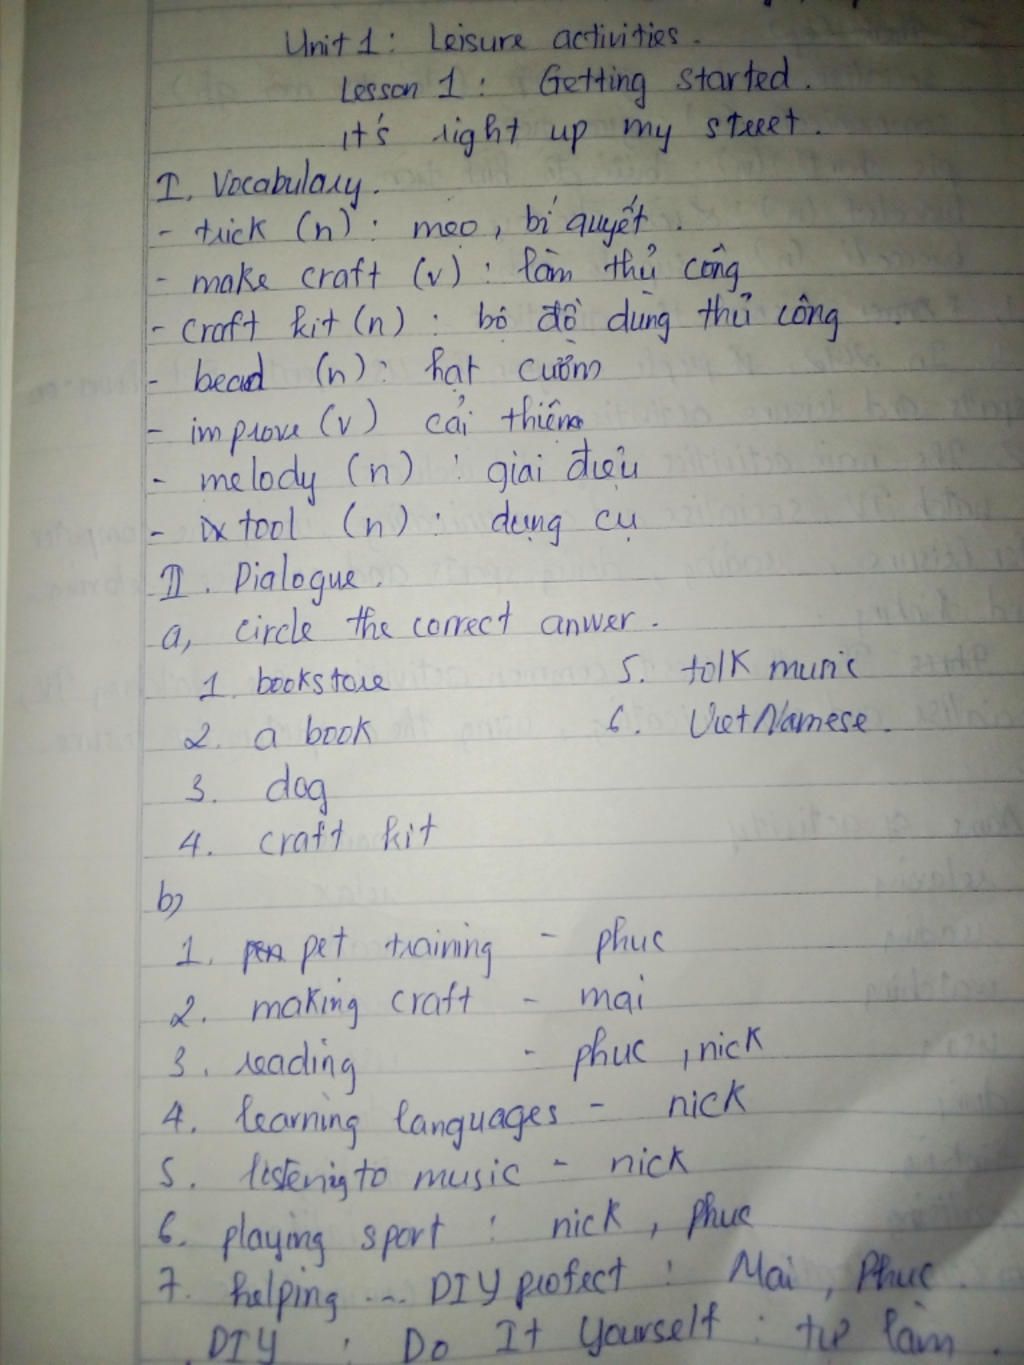 Unit 1: Leisure activities.
Lesson 1: Getting started.
It's right up my street.
I. Vocabulary.
- trick (n): mẹo, bí quyết.
- make craft (v): làm thủ công
- craft kit (n): bộ đồ dùng thủ công
- bead (n): hạt cườm
- improve (v) cải thiện
- melody (n): giai điệu
- tool (n): dụng cụ
II. Dialogue.
a, circle the correct anwer.
1. bookstore 5. folk music
2. a book 6. VietNamese.
3. dog
4. craft kit
b)
1. pet training - phuc
2. making craft - mai
3. reading - phuc, nick
4. learning languages - nick
5. listening to music - nick
6. playing sport: nick, phuc
7. helping ... DIY profect: Mai, Phuc.
DIY: Do It Yourself: tự làm.